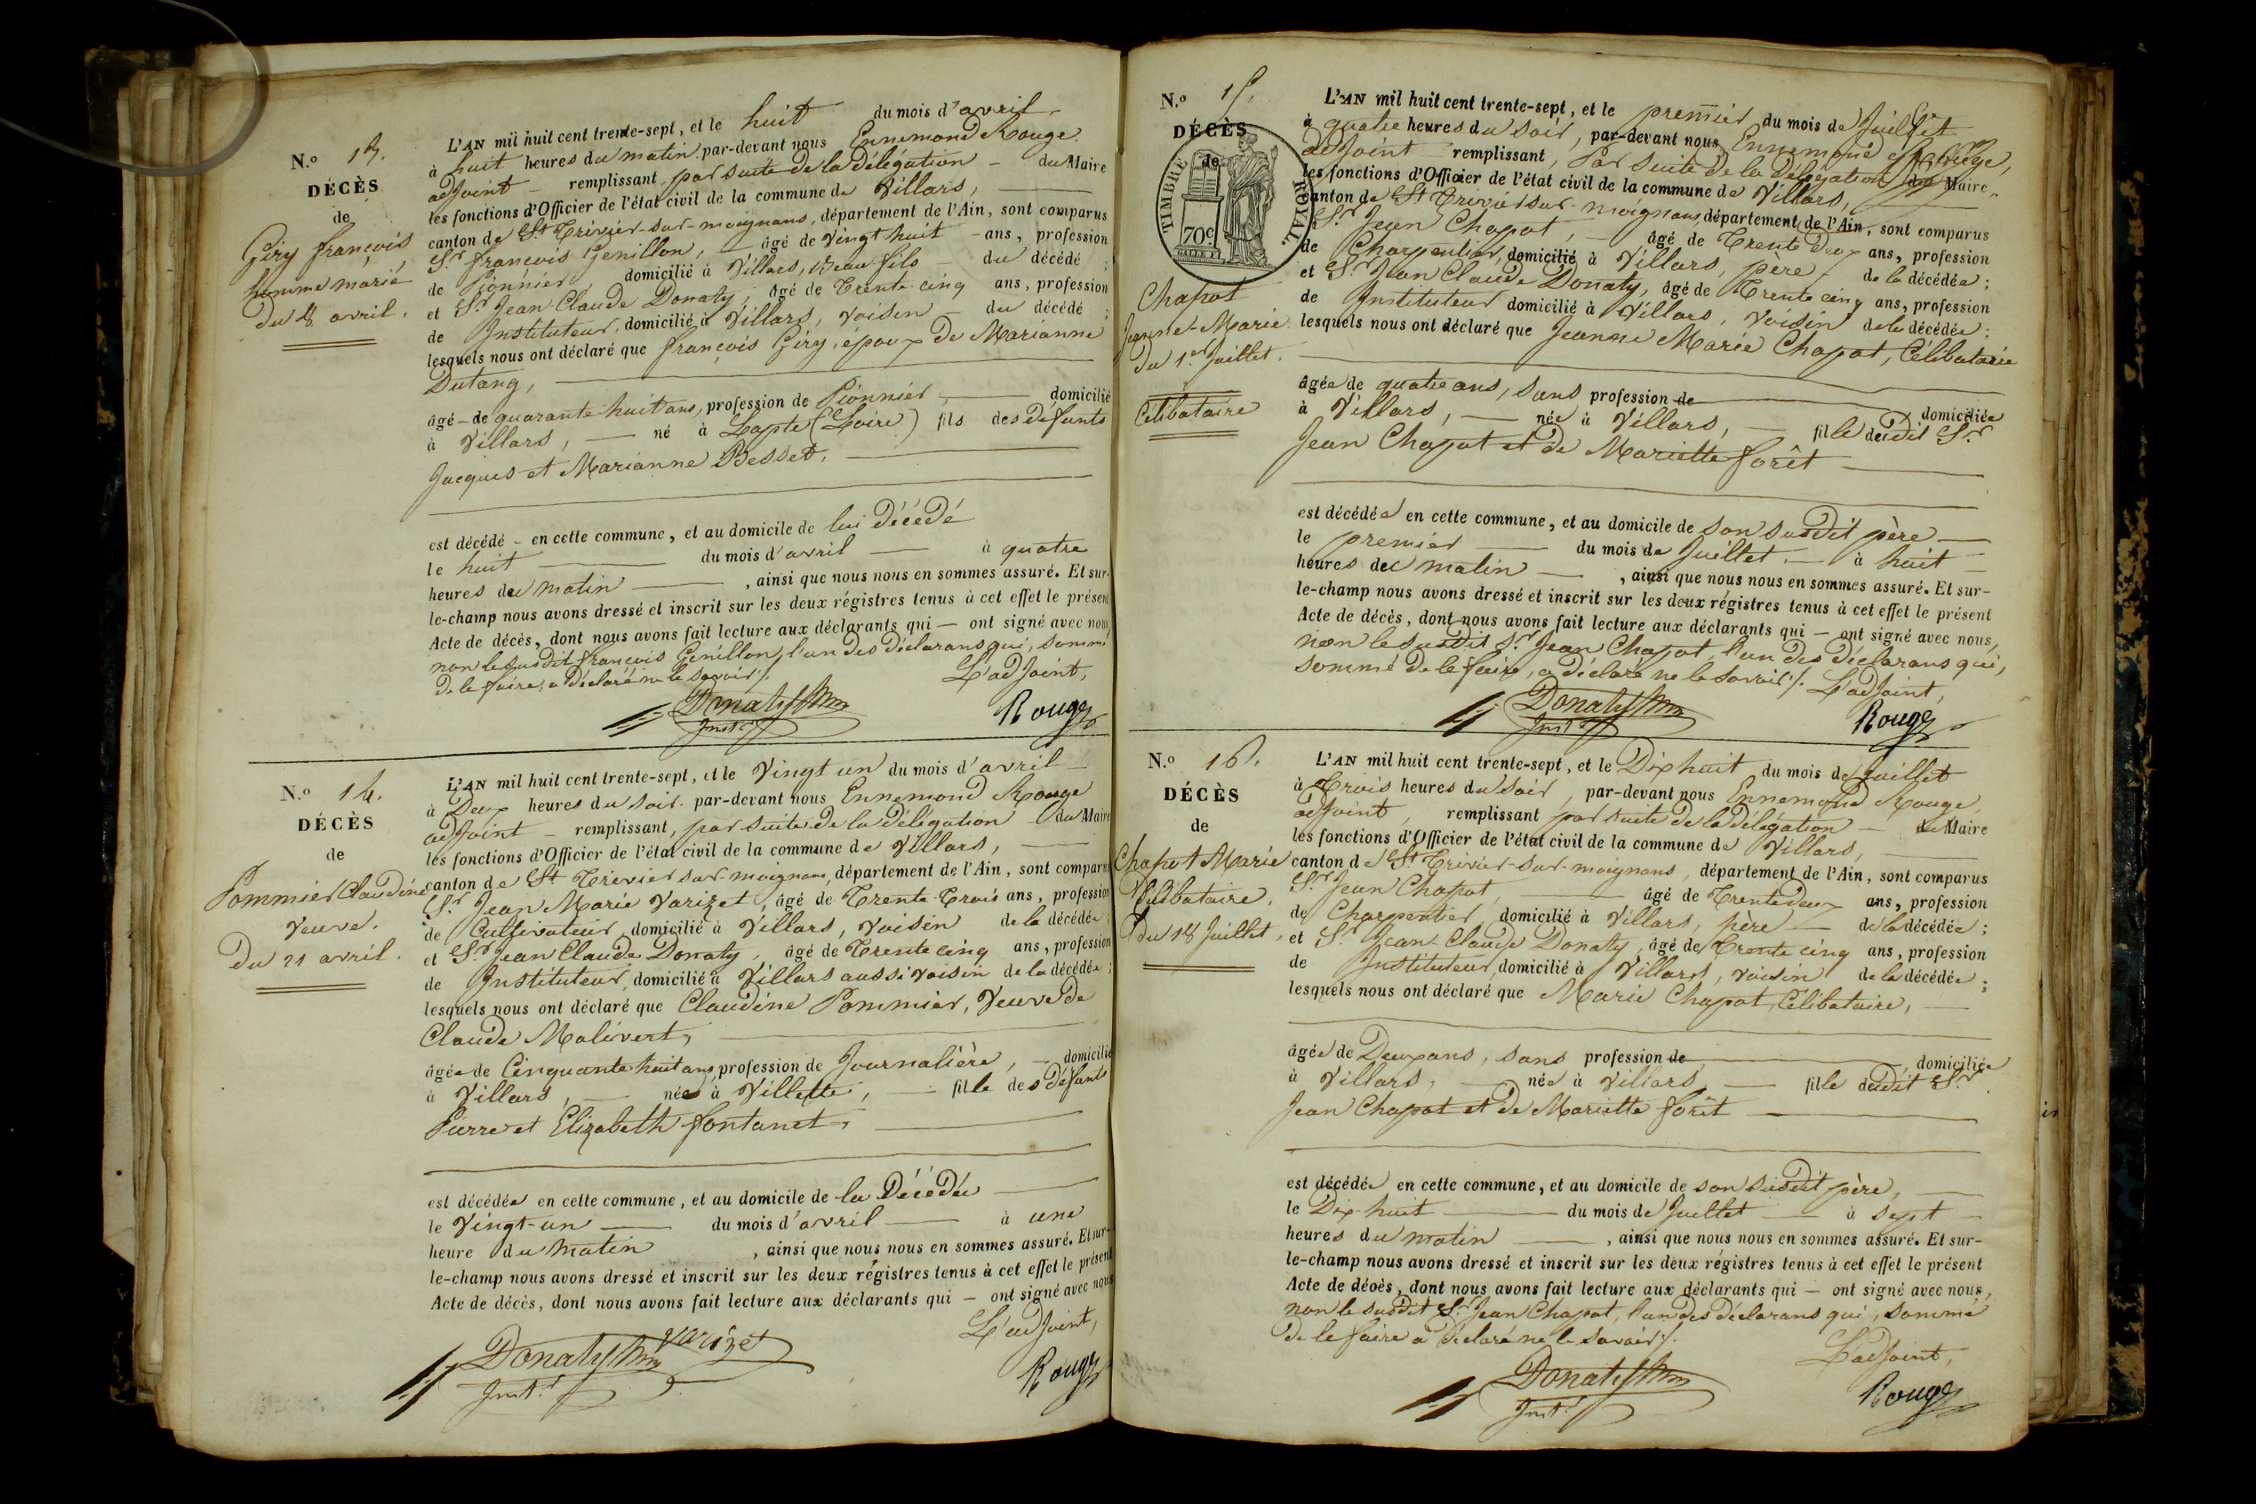 N.o 13.
DÉCÈS
de
Giry françois
homme marié
du 8 avril.
L'AN mil huit cent trente-sept, et le huit du mois d'avril
à huit heures du matin par-devant nous Ennemond Rouge
adjoint – remplissant, par suite de la délégation – du Maire
les fonctions d'Officier de l'état civil de la commune de Villars,
canton de St Trivier-sur-moignans, département de l'Ain, sont comparus
Sr françois Genillon, – âgé de vingt huit – ans, profession
de Pionnier, domicilié à Villars, Beau fils – du décédé ;
et Sr Jean Claude Donaty, âgé de Trente cinq ans, profession
de Instituteur, domicilié à Villars, voisin – du décédé ;
lesquels nous ont déclaré que françois Giry, époux de Marianne
Dutang,
âgé – de quarante-huit ans, profession de Pionnier, domicilié
à Villars, – né à Lapte (Loire) fils des défunts
Jacques et Marianne Besset.
est décédé – en cette commune, et au domicile de lui Décédé
le huit du mois d'avril à quatre
heures du matin, ainsi que nous nous en sommes assuré. Et sur-
le-champ nous avons dressé et inscrit sur les deux régistres tenus à cet effet le présent
Acte de décès, dont nous avons fait lecture aux déclarants qui – ont signé avec nous,
non le susdit françois Genillon, l'un des Déclarans qui, sommé
de le faire, a déclaré ne le savoir ./.
L'adjoint,
Donaty
Inst.r
Rouge
N.o 14.
DÉCÈS
de
Pommier Claudine
Veuve.
Du 21 avril.
L'AN mil huit cent trente-sept, et le Vingt un du mois d'avril
à Deux heures du soir par-devant nous Ennemond Rouge
adjoint – remplissant, par suite de la délégation – du Maire
les fonctions d'Officier de l'état civil de la commune de Villars,
canton de St Trivier sur-moignans, département de l'Ain, sont comparus
Sr Jean Marie Varizet, âgé de Trente Trois ans, profession
de Cultivateur, domicilié à Villars, Voisin de la décédée ;
et Sr Jean Claude Donaty, âgé de Trente cinq ans, profession
de Instituteur, domicilié à Villars aussi voisin de la décédée ;
lesquels nous ont déclaré que Claudine Pommier, Veuve de
Claude Malivert,
âgée de Cinquante huit ans, profession de Journalière, – domicilié
à Villars, – née à Villette, – fille des défunts
Pierre et Elizabeth fontanet,
est décédée en cette commune, et au domicile de la Décédée
le Vingt-un du mois d'avril à une
heure du matin, ainsi que nous nous en sommes assuré. Et sur-
le-champ nous avons dressé et inscrit sur les deux régistres tenus à cet effet le présent
Acte de décès, dont nous avons fait lecture aux déclarants qui – ont signé avec nous
L'adjoint,
Donaty varizet
Inst.r
Rouge
N.o 15.
DÉCÈS
de
TIMBRE ROYAL.
70c
Chapot
Jeanne-Marie
du 1er Juillet.
Célibataire
L'AN mil huit cent trente-sept, et le premier du mois de Juillet
à quatre heures du soir, par-devant nous Ennemond Rouge,
adjoint remplissant, Par suite de la délégation du Maire
les fonctions d'Officier de l'état civil de la commune de Villars,
canton de St Trivier sur-moignans département de l'Ain, sont comparus
Sr Jean Chapot, – âgé de Trente Deux ans, profession
de Charpentier, domicilié à Villars, père – de la décédée ;
et Sr Jean Claude Donaty, âgé de Trente cinq ans, profession
de Instituteur domicilié à Villars, voisin de la décédée ;
lesquels nous ont déclaré que Jeanne Marie Chapot, Célibataire
âgée de quatre ans, sans profession de domiciliée
à Villars, – née à Villars, – fille dudit Sr
Jean Chapot et de Mariette forêt
est décédée en cette commune, et au domicile de son susdit père
le premier du mois de Juillet – à huit
heures du matin, ainsi que nous nous en sommes assuré. Et sur-
le-champ nous avons dressé et inscrit sur les deux régistres tenus à cet effet le présent
Acte de décès, dont nous avons fait lecture aux déclarants qui – ont signé avec nous,
non le susdit Sr Jean Chapot l'un des déclarans qui,
sommé de le faire, a déclaré ne le savoir ./. L'adjoint,
Donaty
Inst.r
Rouge
N.o 16.
DÉCÈS
de
Chapot Marie
Célibataire,
Du 18 Juillet,
L'AN mil huit cent trente-sept, et le Dix huit du mois de Juillet
à Trois heures du soir, par-devant nous Ennemond Rouge,
adjoint, remplissant par suite de la délégation – du Maire
les fonctions d'Officier de l'état civil de la commune de Villars,
canton de St Trivier-sur-moignans, département de l'Ain, sont comparus
Sr Jean Chapot, âgé de Trente deux ans, profession
de Charpentier, domicilié à Villars, père – de la décédée ;
et Sr Jean-Claude Donaty, âgé de Trente cinq ans, profession
de Instituteur, domicilié à Villars, voisin de la décédée ;
lesquels nous ont déclaré que Marie Chapot, Célibataire,
âgée de Deux ans, sans profession de, domiciliée
à Villars, née à Villars fille dudit Sr
Jean Chapot et de Mariette forêt
est décédée en cette commune, et au domicile de son susdit père,
le Dix-huit du mois de Juillet à sept
heures du matin, ainsi que nous nous en sommes assuré. Et sur-
le-champ nous avons dressé et inscrit sur les deux régistres tenus à cet effet le présent
Acte de décès, dont nous avons fait lecture aux déclarants qui – ont signé avec nous,
non le susdit Sr Jean Chapot, l'un des déclarans qui, sommé
de le faire a déclaré ne le savoir ./.
L'adjoint,
Donaty
Inst.r
Rouge